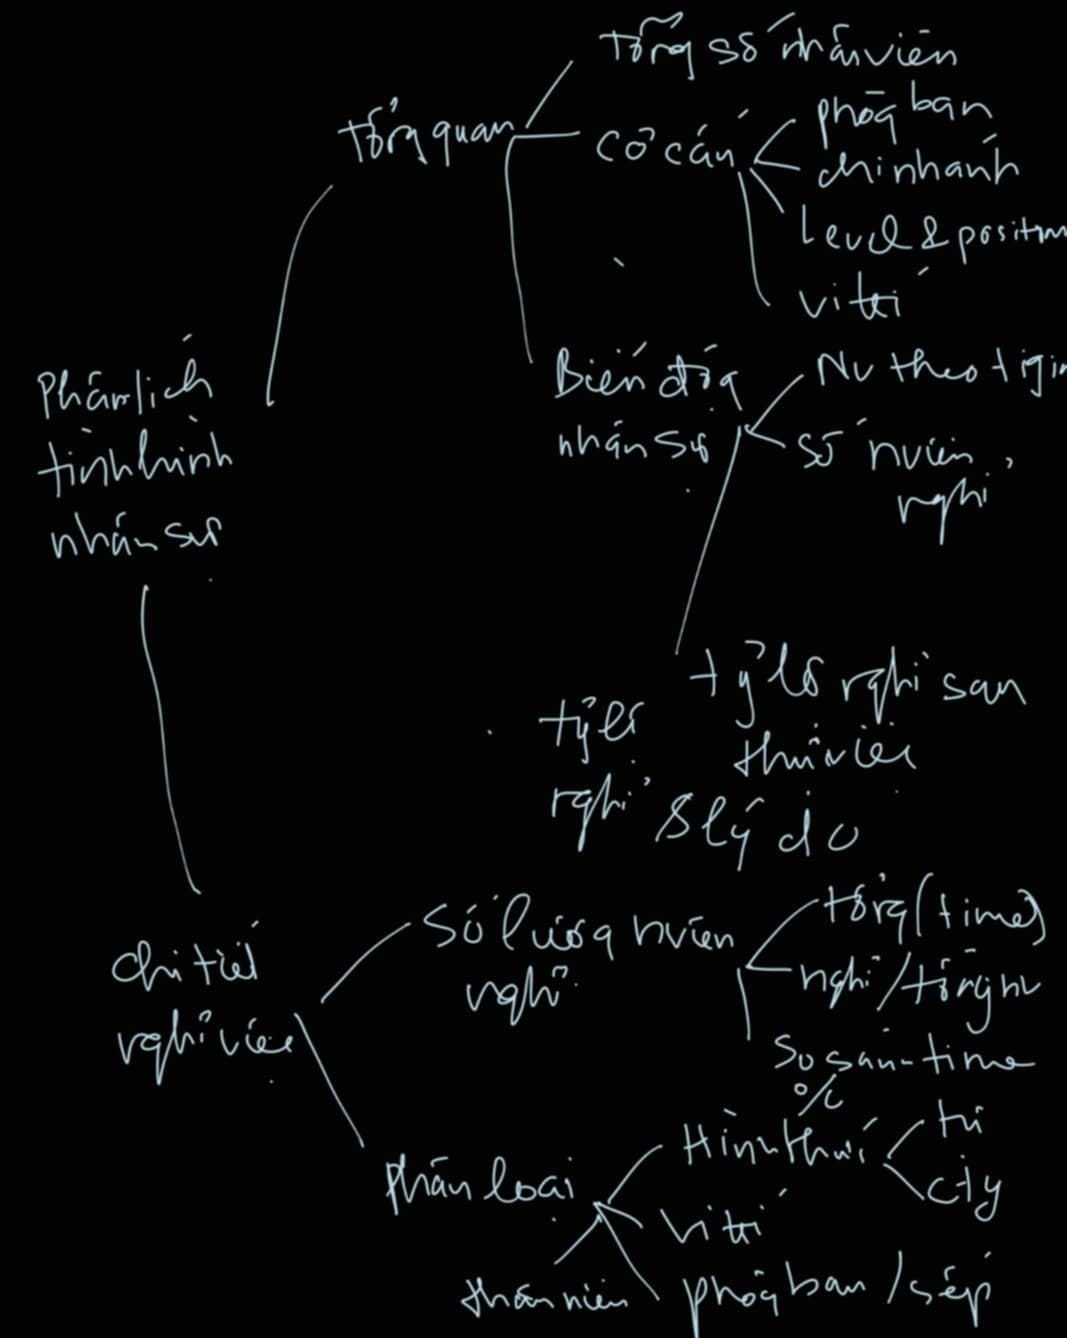 Tổng số nhân viên
tổng quan
cơ cấu
phòg ban
chi nhánh
Level & position
vị trí
Biến độg
nhân sự
Nv theo t gian
số nviên
nghỉ
Phân tích
tình hình
nhân sự
tỷ lệ nghỉ sau
thử việc
tỷ lệ
nghỉ & lý do
Chi tiết
nghỉ việc
Số lượg nviên
nghỉ
tổng (time)
nghỉ / tổng nv
So sánh - time
%
Phân loại
Hình thức
cty
Vị trí
phòg ban / sếp
thâm niên